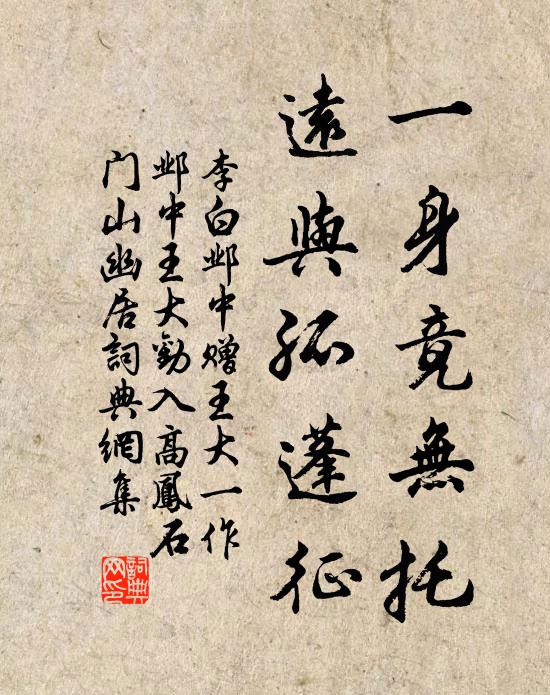 一身竟無托
遠與孤蓬征
李白邺中赠王大一作
邺中王大勸入高鳳石
门山幽居詞典網集
詞典網印